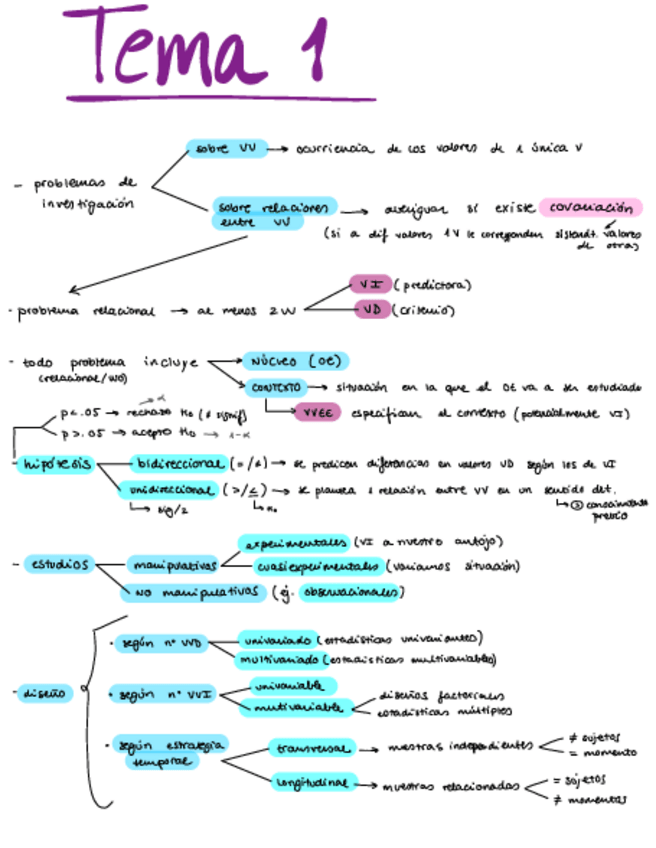 Tema 1
- problemas de investigación
sobre VV → ocurriencia de los valores de 1 única V
sobre relaciones entre VV → averiguar si existe covariación
(si a dif valores 1V le corresponden sistemát. valores de otras
- problema relacional → al menos 2VV
VI (predictora)
VD (criterio)
- todo problema incluye
(relacional/no)
NÚCLEO (OE)
CONTEXTO → situación en la que el OE va a ser estudiado
VVEE especifican el contexto (potencialmente VI)
p<.05 → rechazo H₀ (∄ signif)
→ α
p>.05 → acepto H₀ → 1-α
- hipótesis
bidireccional (=/≠) → se predicen diferencias en valores VD según los de VI
unidireccional (>/≤) → se plantea 1 relación entre VV en un sentido det.
↳ sig/2
↳ H₀
↳ conocimiento previo
- estudios
manipulativos
experimentales (VI a nuestro antojo)
cuasiexperimentales (variamos situación)
NO manipulativos (ej. observacionales)
- diseño
· según nº VVD
univariado (estadísticas univariantes)
multivariado (estadísticas multivariables)
· según nº VVI
univariable
multivariable
diseños factoriales
estadísticas múltiples
· según estrategia temporal
transversal → muestras independientes
≠ sujetos
= momento
longitudinal → muestras relacionadas
= sujetos
≠ momentos